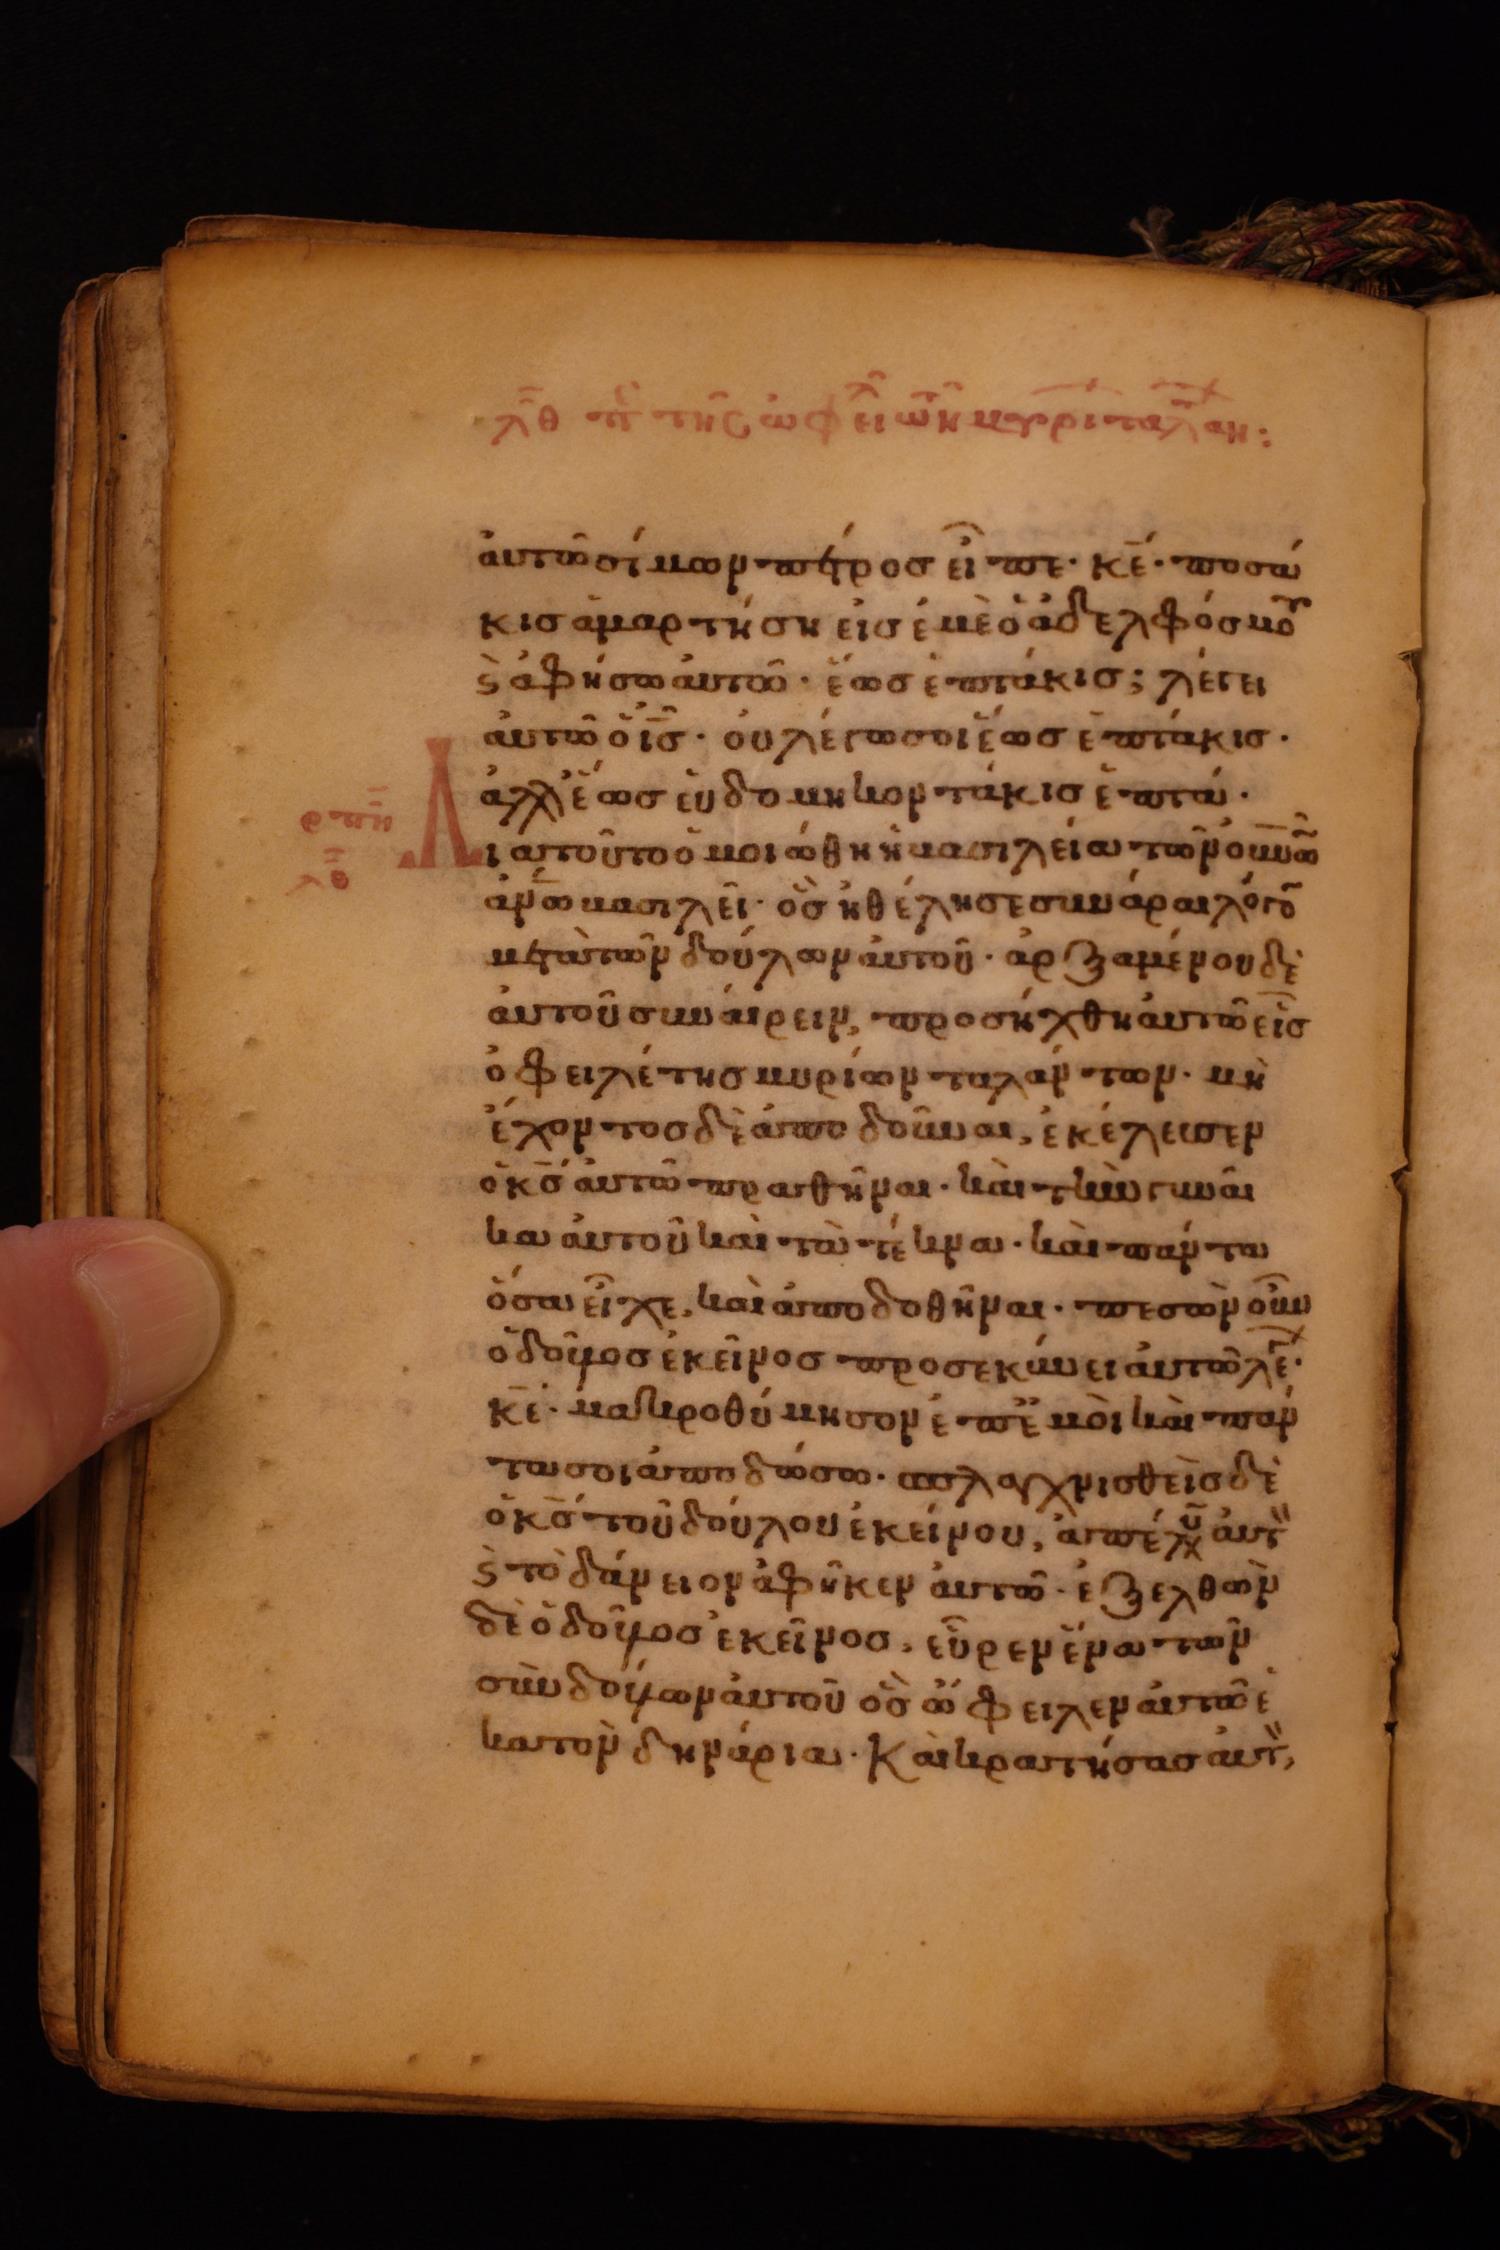 λθ πρ τῆς ὠφει μυρι ταλαν:
ἀυτῶ σίμων πέτρος εἶπε· κε̄· ποσά
κισ ἁμαρτήση εἰσ ἐμὲ ὁ ἀδελφόσ μου
ϛ ἀφήσω ἀυτῶ· ἕωσ ἑπτάκισ; λέγει
ἀυτῶ ὁ ἰ̅σ̅· ὀυ λέγω σοι ἕωσ ἑπτάκισ·
ἀλλ' ἕωσ ἑβδομηκοντάκισ ἑπτά·
σπη
λθ
Διατοῦτο ὁμοιώθη ἡ βασιλεία τῶν οὐνῶ
ἀνω̅ βασιλεῖ· ὃσ ἠθέλησε συνάραι λόγο
μετὰ τῶν δούλων ἀυτοῦ· ἀρξαμένου δὲ
ἀυτοῦ συνάιρειν, προσήχθη ἀυτῶ εἷσ
ὀφειλέτησ μυρίων ταλάντων· μὴ
ἔχοντοσ δὲ ἀποδοῦναι, ἐκέλευσεν
ὁ κ̅σ̅ ἀυτῶ πραθῆναι· καὶ τὴν γυναῖ
κα ἀυτοῦ καὶ τὰ τέκνα· καὶ πάντα
ὅσα εἶχε, καὶ ἀποδοθῆναι· πεσὼν οὖν
ὁ δοῦλοσ ἐκεῖνοσ προσεκύνει ἀυτῶ λε·
κε̄· μακροθύμησον ἐπ' ἐμὸι καὶ πάν
τα σοι ἀποδώσω· σπλαγχνισθεὶσ δὲ
ὁ κ̅σ̅ τοῦ δούλου ἐκείνου, ἀπέλυ ἀυτ
ϛ τὸ δάνειον ἀφῆκεν ἀυτῶ· ἐξελθὼν
δὲ ὁ δοῦλοσ ἐκεῖνοσ, εὗρεν ἕνα τῶν
συνδούλων ἀυτοῦ ὃσ ὤφειλεν ἀυτῶ ἑ
κατὸν δηνάρια· Καὶ κρατήσασ ἀυτ,